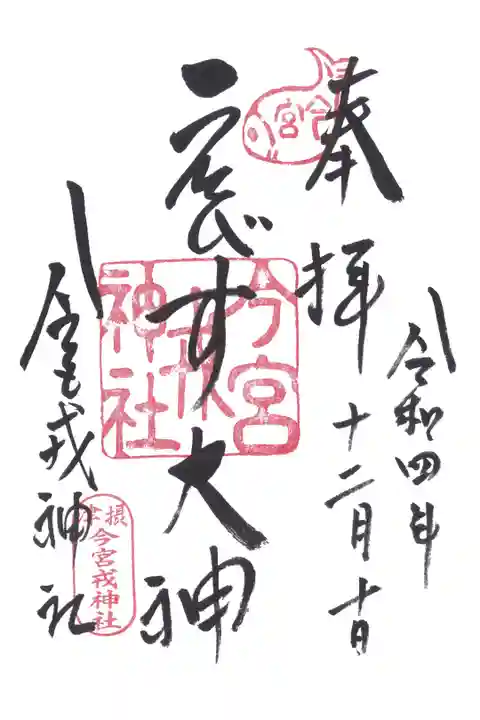 奉拝
令和四年
十二月十日
今宮
ゑびす大神
今宮戎神社
今宮戎神社
摂津
今宮戎神社